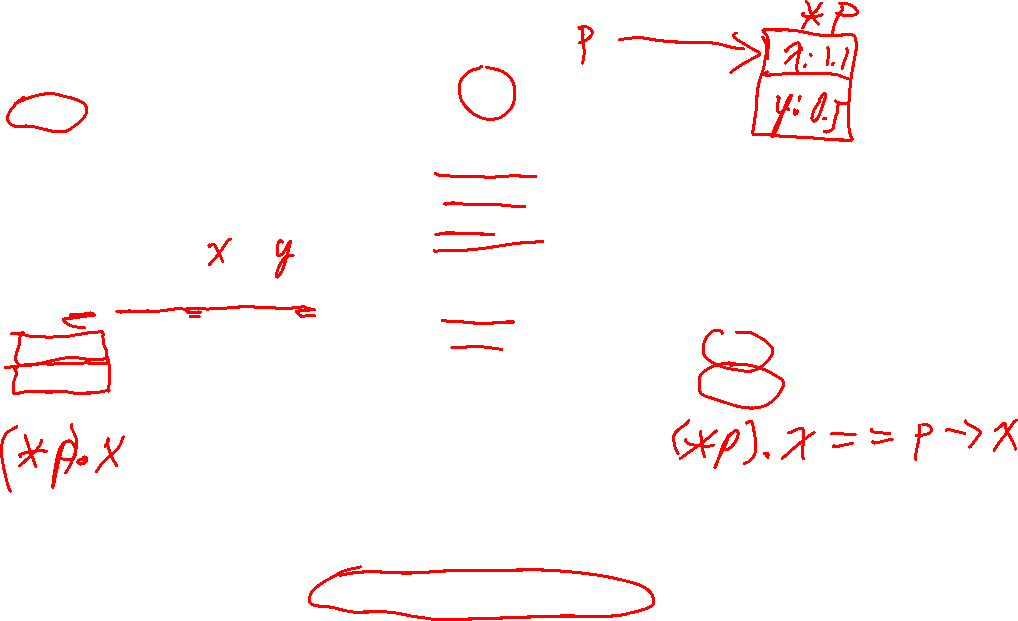 *p
p
x: 1.1
y: 0.5
x y
(*p).x
(*p).x == p->x